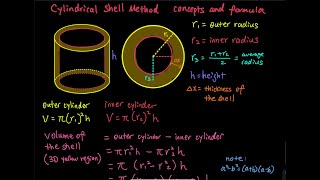 Cylindrical Shell Method concepts and formula
r₁ = outer radius
r₂ = inner radius
r₃ = (r₁+r₂)/2 = average radius
h = height
Δx = thickness of the shell
h
r₁
r₂
outer cylinder
V = π(r₁)²h
inner cylinder
V = π(r₂)²h
Volume of the shell (3D yellow region)
= outer cylinder - inner cylinder
= πr₁²h - πr₂²h
= π (r₁² - r₂²) h
note:
a²-b²=(a+b)(a-b)